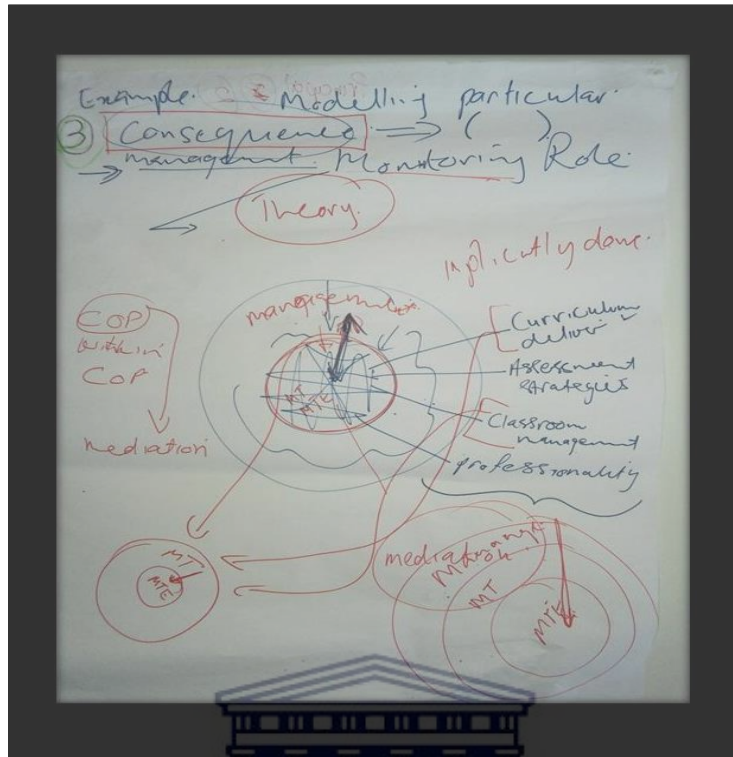 Example. Modelling particular.
3 Consequence ⇒ ( )
→ management. Monitoring Role.
Theory.
Implicitly done.
management
COP
within
COP
mediation
Curriculum
deliver
Assessment
strategies
Classroom
management
professionality
MT
MTE
MT
MTE
mediation
MT
MTE